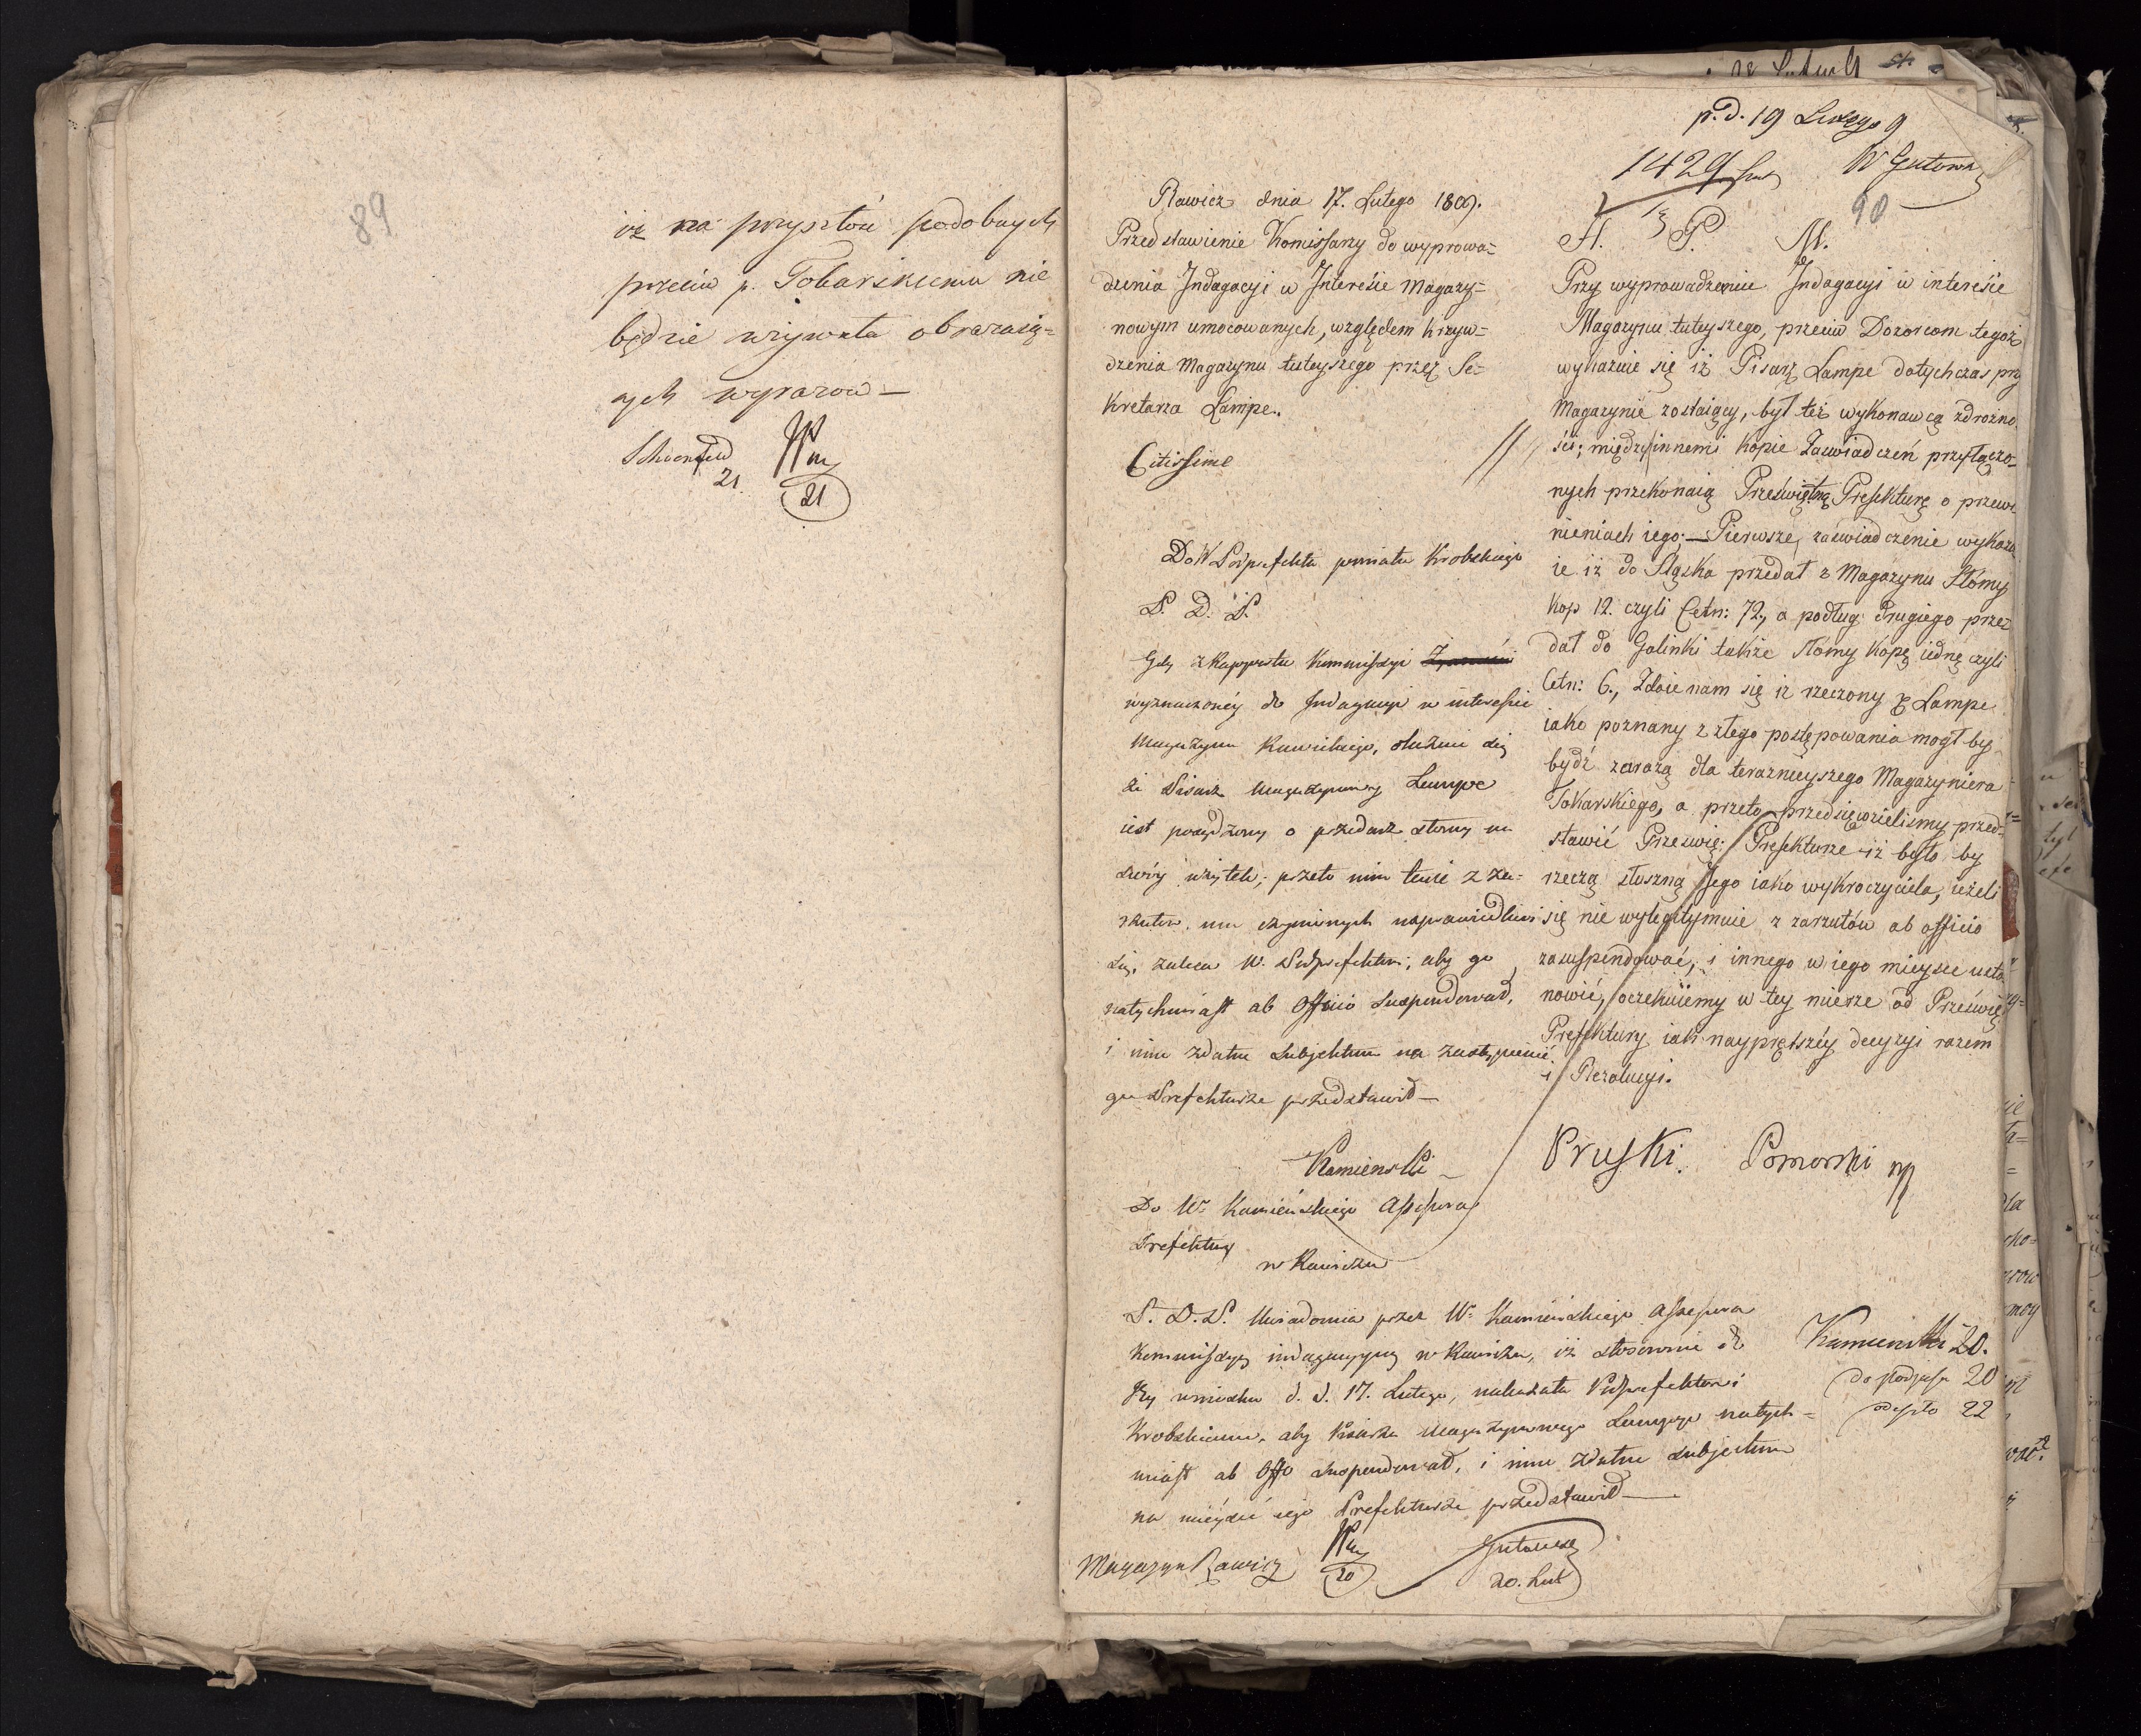 89
iż na przyszłość podobnych
przeciw p. Tokarskiemu nie
będzie używała obrażaią=
cych wyrazow —
Schoenfeld
21
21
p. d. 19 Lutego 9
1429
W Gutowski
90
Rawicz dnia 17. Lutego 1809.
Przedstawienie Komissarzy do wyprowa=
dzenia Indagacyi w Interesie Magazy=
nowym umocowanych, względem krzyw=
dzenia Magazynu tuteyszego przez Se=
kretarza Lampe.
Citissime
Do W Podprefekta powiatu Krobskiego
P. D. P.
Gdy z Rapportu Kommissyi
wyznaczonéy do Indagacyi w interessie
Magazynu Rawickiego, okazuie się
że Pisarz Magazynowy Lampe
iest posądzony o przedaż słomy na
swóy użytek; przeto nim tenże z za=
rzutów mu czynionych usprawiedliwi
się, zaleca W. Podprefektowi, aby go
natychmiast ab Officio suspendował,
i inne zdatne Subjektum na zastąpienie
go Prefekturze przedstawił —
Kamieński
Do Wo Kamieńskiego Assessora
Prefektury
w Rawiczu
P. D. P. Uwiadomia przez Wo Kamieńskiego Assessora
Kommissyą indagacyyną w Rawiczu, iż stosownie do
Jey wniosku d. d. 17. Lutego, nakazała Podprefektowi
Krobskiemu, aby Pisarza Magazynowego Lampego natych=
miast ab Offo suspendował, i inne zdatne subjectum
na mieysce iego Prefekturze przedstawił —
Magazyn Rawicz
20
Gutowski
20. Lut
H. P. M.
Przy wyprowadzenie Indagacyi w interesie
Magazynu tuteyszego, przeciw Dozorcom tegoż
wykazuie się iż Pisarz Lampe dotychczas przy
Magazynie zostaiący, był też wykonawcą zdrożno=
ści; między innemi Kopie Zaświadczeń przyłączo=
nych przekonaią Przeświętną Prefekturę o przewi=
nieniach iego; — Pierwsze, zaświadczenie wykazu
ie iż do Sląska przedał z Magazynu Słómy
kop 12. czyli Cetn: 72, a podług drugiego przez
dał do Golinki także słómy kopę iednę czyli
Cetn: 6., Zdaie nam się iż rzeczony p Lampe
iako poznany z złego postępowania mogł by
bydź zarazą dla teraznieyszego Magazyniera
Tokarskiego, a przeto przedsięwzieliśmy przed=
stawić Prześwię: Prefekturze iż było by
rzeczą słuszną Jego iako wykroczyciela, ieżeli
się nie wylegitymuie z zarzutów ab officio
zasuspendować, i innego w iego mieysce usta=
nowić, oczekuiemy w tey mierze od Prześwię
Prefektury iak nayprętszéy decyzyi razem
i Rezolucyi.
Pruski. Pomorski mp
Kamieński 20.
do podpisu 20
odeszło 22